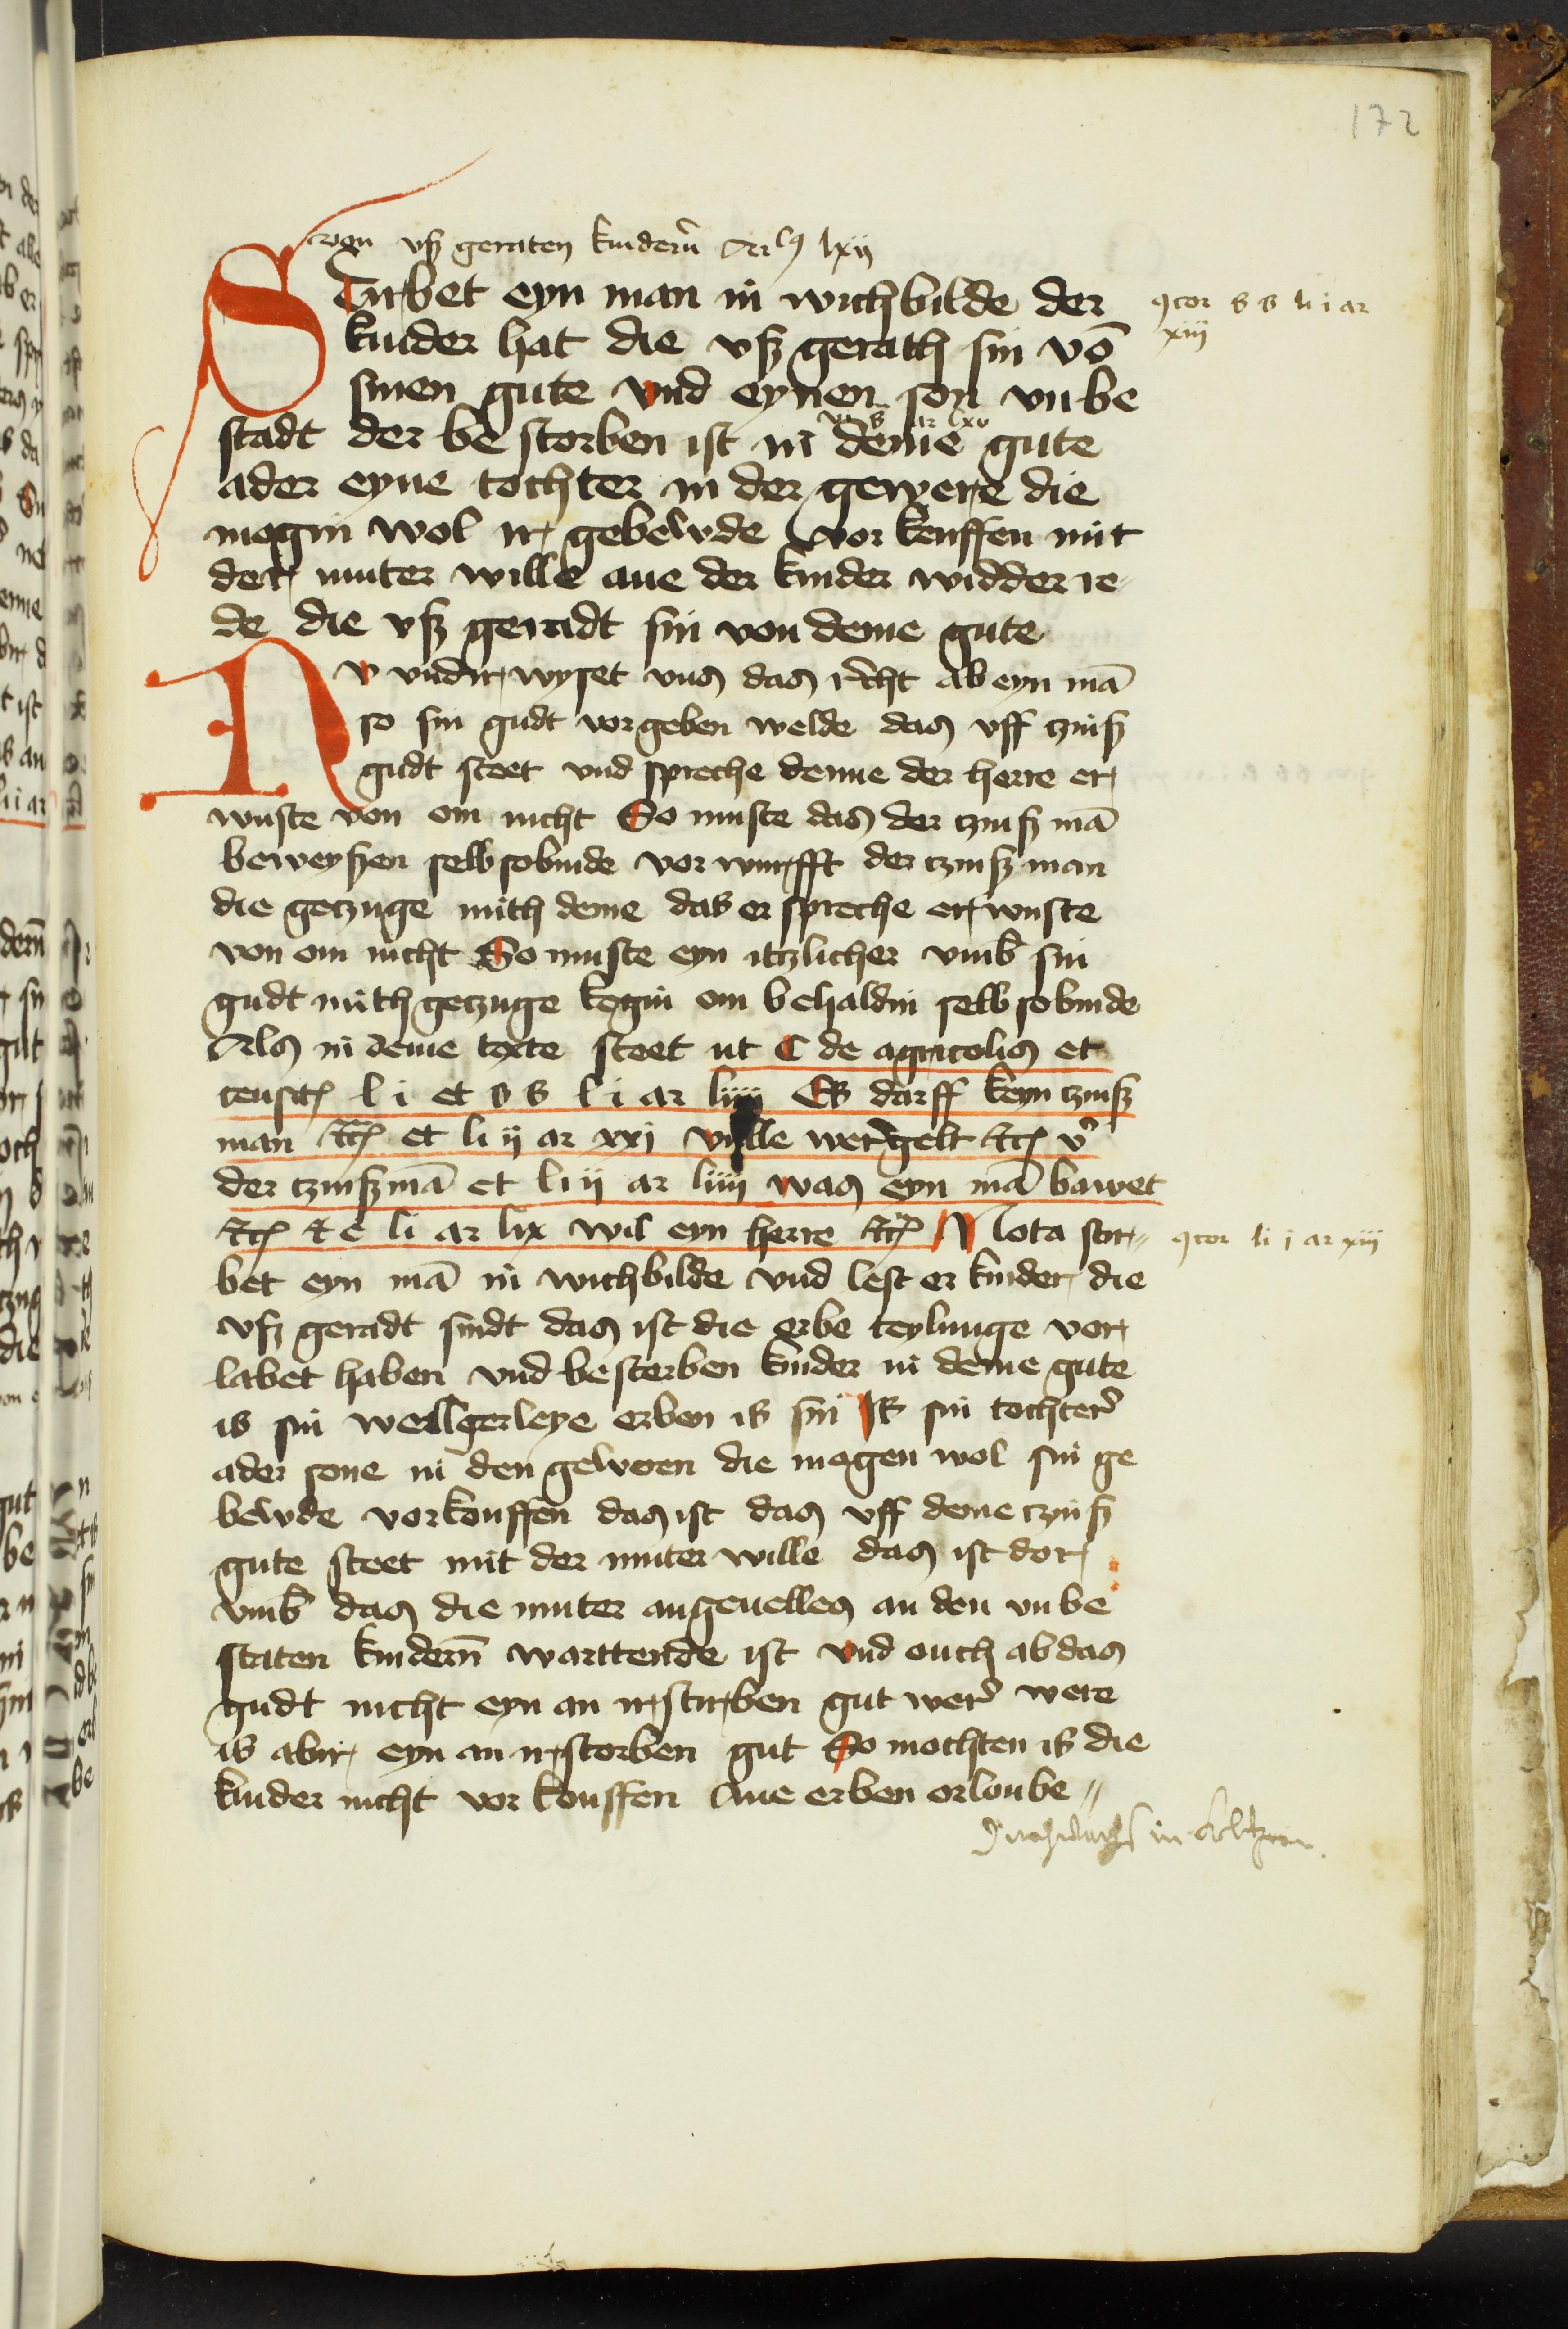 172
von vß geraten kindern̄ Arls lxij
Stirbet eyn man in wichbilde der
kinder hat die vß gerath sin vō
sinen gute vnd eynen son vnbe
stadt der be storben ist in deme gute
ader eyne tochter in der gewere die
mogin wol ir gebewde vor keuffen mit
der muter wille ane der kinder widder re-
de die vß geradt sin von deme gute
Nv vndir wyset vns das recht ab eyn mā
so sin gudt vorgeben welde das vff czinß
gudt steet vnd spreche denne der herre er
wuste von om nicht So muste das der czinß mā
beweyßen selbsobinde vor wurfft der czinß man
die geczuge mith deme das er spreche er wuste
von om nicht So muste eyn itzlicher vmb sin
gudt mith geczuge kegin om behaldin selbsobinde
Als in deme texte steet ut C de agricolis et
censit l i et s s l i ar liiij Es darff keyn czinß
man etc et li ij ar xxj wille wergelt etc v
der czinßmā et li ij ar liiij was eyn mā bawet
etc et e li ar lix wil eyn herre etc Nota stir-
bet eyn mā in wichbilde vnd lest er kinder die
vß geradt sindt das ist die erbe teylunge vor
labet haben vnd besterben kinder in deme gute
is sin wellgerleye erben is sin Is sin tochter
ader sone in den geweren die mogen wol sin ge
bewde vorkouffen das ist das vff deme czinß
gute steet mit der muter wille das ist dor
vmb das die muter angeuelles an den vnbe
staten kindern̄ warttende ist vnd ouch ab das
gudt nicht eyn an irstirben gut wer were
is abir eyn an irstorben gut So mochten is die
kinder nicht vor kouffen Ane erben orloube
qcor s s li i ar
xiij
qcor li j ar xiij